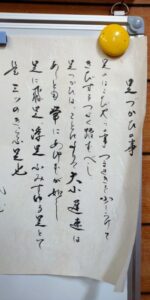 足つかひの事
足のはこびやうの事つまさきを少うけて
きびすをつよく踏べし
足つかひはことによりて大小遅速は
ありとも常にあゆむがごとし
足に飛足浮足ふみすゆる足とて
是三ツきらふ足也